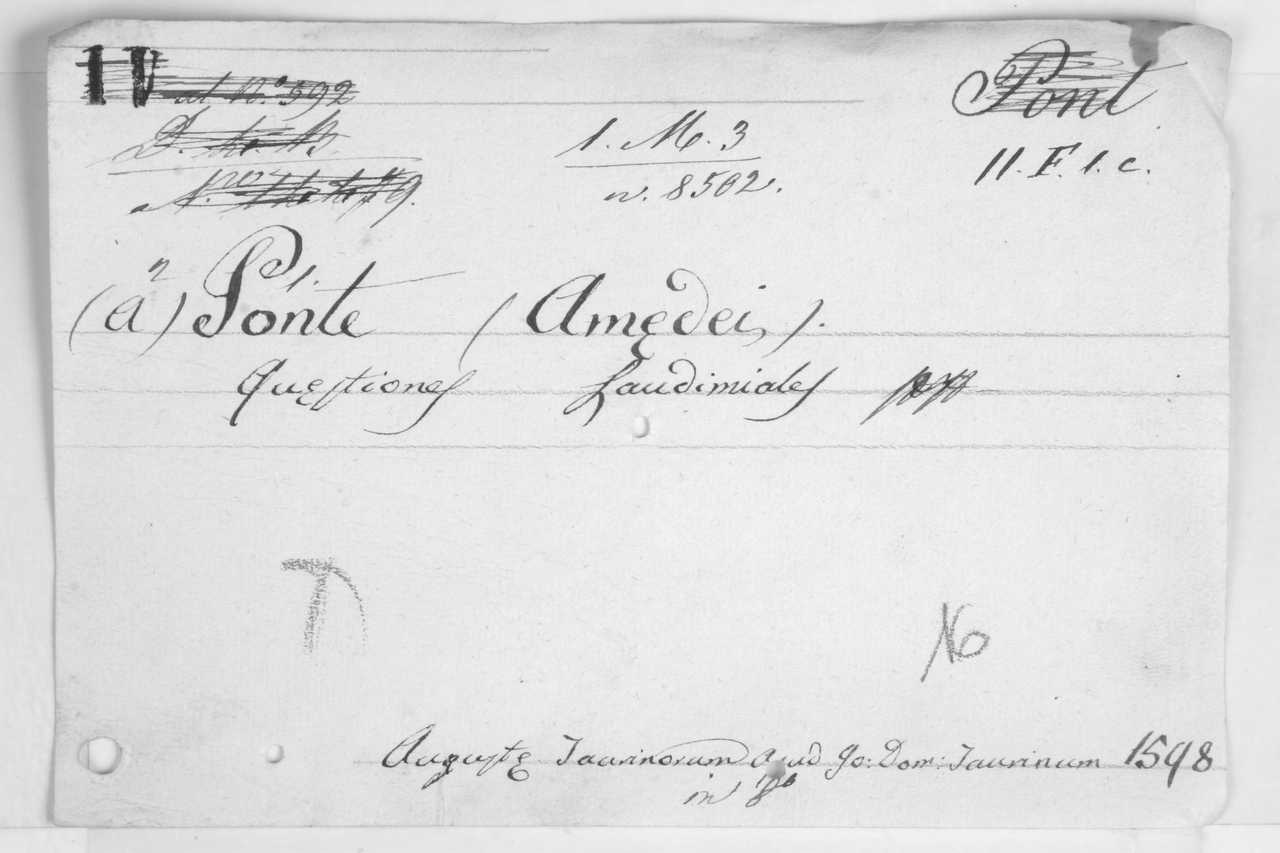 IV al N.º 592
Pont
1. M. 3
n. 8502.
11. F. 1. c.
(a) Ponte (Amędei).
2 1.
Quęstiones Laudimiales
No
Augustę Taurinorum apud Jo: Dom: Taurinum 1598
in 8º